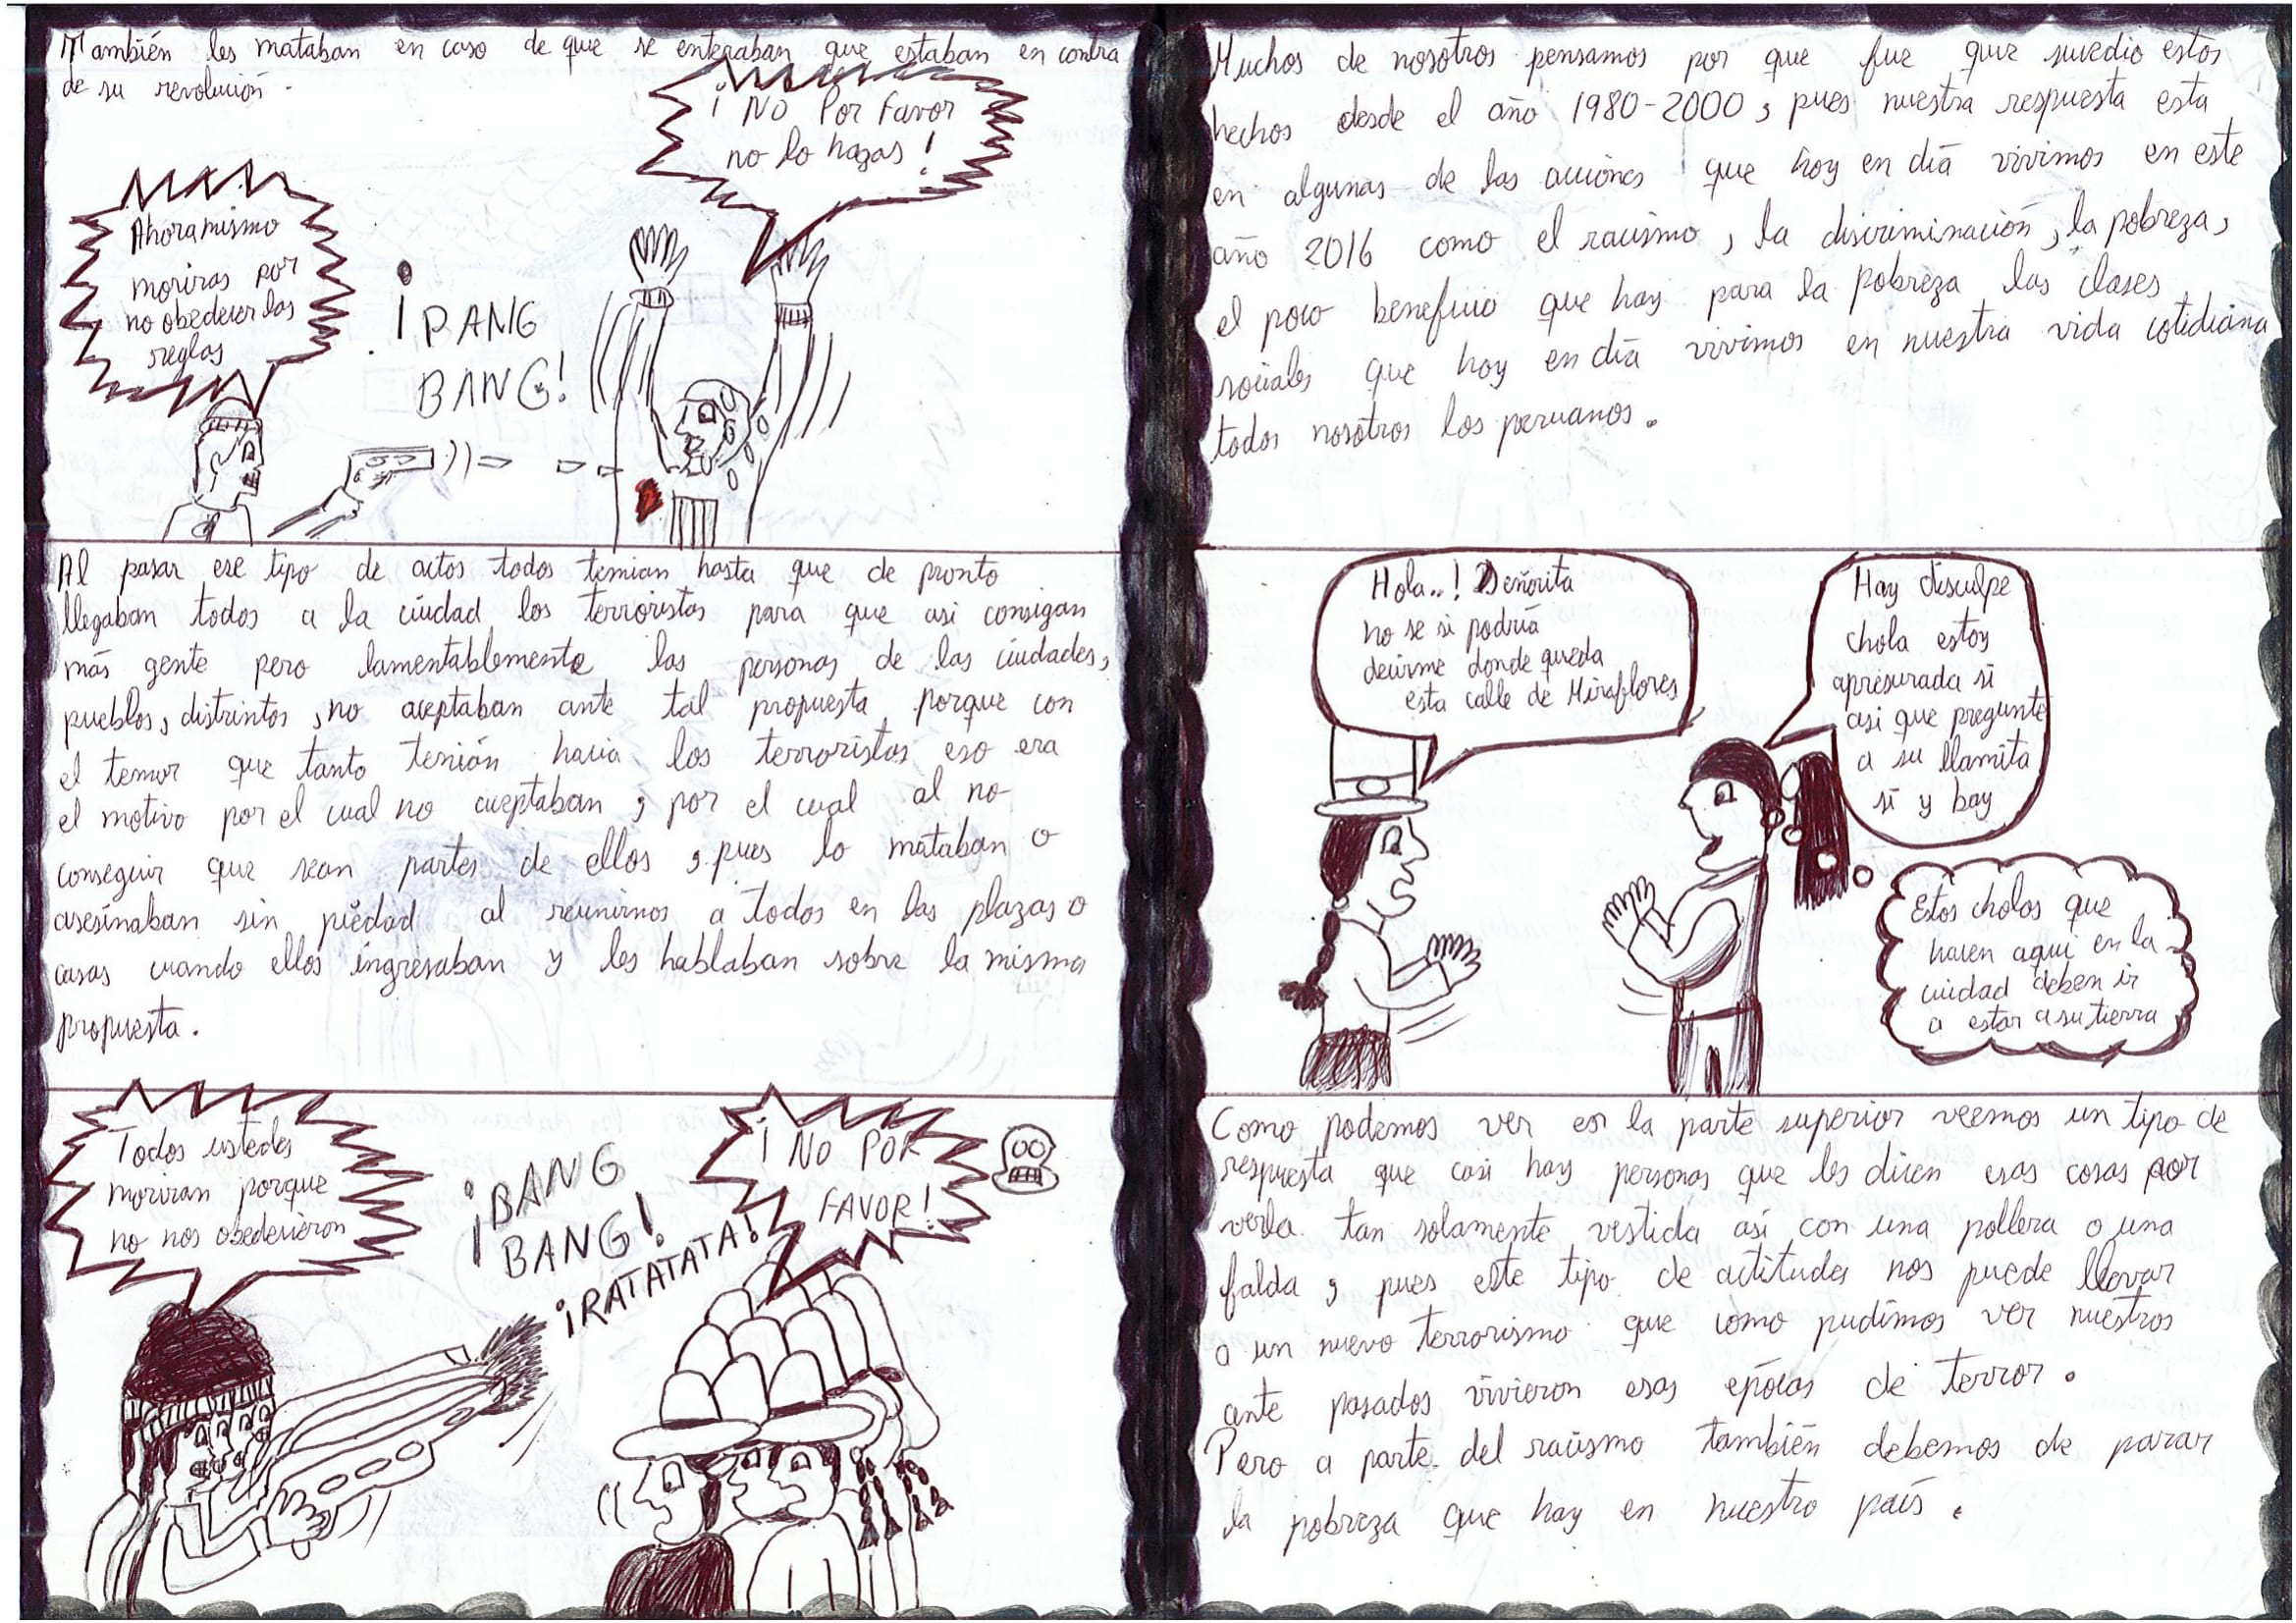 También les mataban en caso de que se enteraban que estaban en contra
de su revolución.
¡ NO Por Favor
no lo hagas !
Ahora mismo
moriras por
no obedecer las
reglas
¡ BANG
BANG!
Al pasar ese tipo de actos todos temian hasta que de pronto
llegaban todos a la ciudad los terroristas para que asi consigan
más gente pero lamentablemente las personas de las ciudades,
pueblos, distrintos, no aceptaban ante tal propuesta porque con
el temor que tanto tenión hacia los terroristas eso era
el motivo por el cual no aceptaban, por el cual al no
conseguir que sean partes de ellos, pues lo mataban o
asesinaban sin piedad al reunirnos a todos en las plazas o
casas cuando ellos ingresaban y les hablaban sobre la misma
propuesta.
Todos ustedes
moriran porque
no nos obedecieron
¡BANG
BANG!
¡RATATATA!
¡ NO POR
FAVOR!
Muchos de nosotros pensamos por que fue que sucedio estos
hechos desde el año 1980-2000, pues nuestra respuesta esta
en algunas de las acciones que hoy en día vivimos en este
año 2016 como el racismo, la discriminación, la pobreza,
el poco beneficio que hay para la pobreza las clases
sociales que hoy en día vivimos en nuestra vida cotidiana
todos nosotros los peruanos.
Hola..! Señorita
no se si podría
decirme donde queda
esta calle de Miraflores
Hay disculpe
chola estoy
apresurada si
asi que pregunte
a su llamita
si y bay
Estos cholos que
hacen aqui en la
ciudad deben ir
a estar a su tierra
Como podemos ver en la parte superior veemos un tipo de
respuesta que casi hay personas que les dicen esas cosas por
verla tan solamente vestida así con una pollera o una
falda, pues este tipo de actitudes nos puede llevar
a un nuevo terrorismo que como pudimos ver nuestros
ante pasados vivieron esas epocas de terror.
Pero a parte del racismo también debemos de parar
la pobreza que hay en nuestro país.